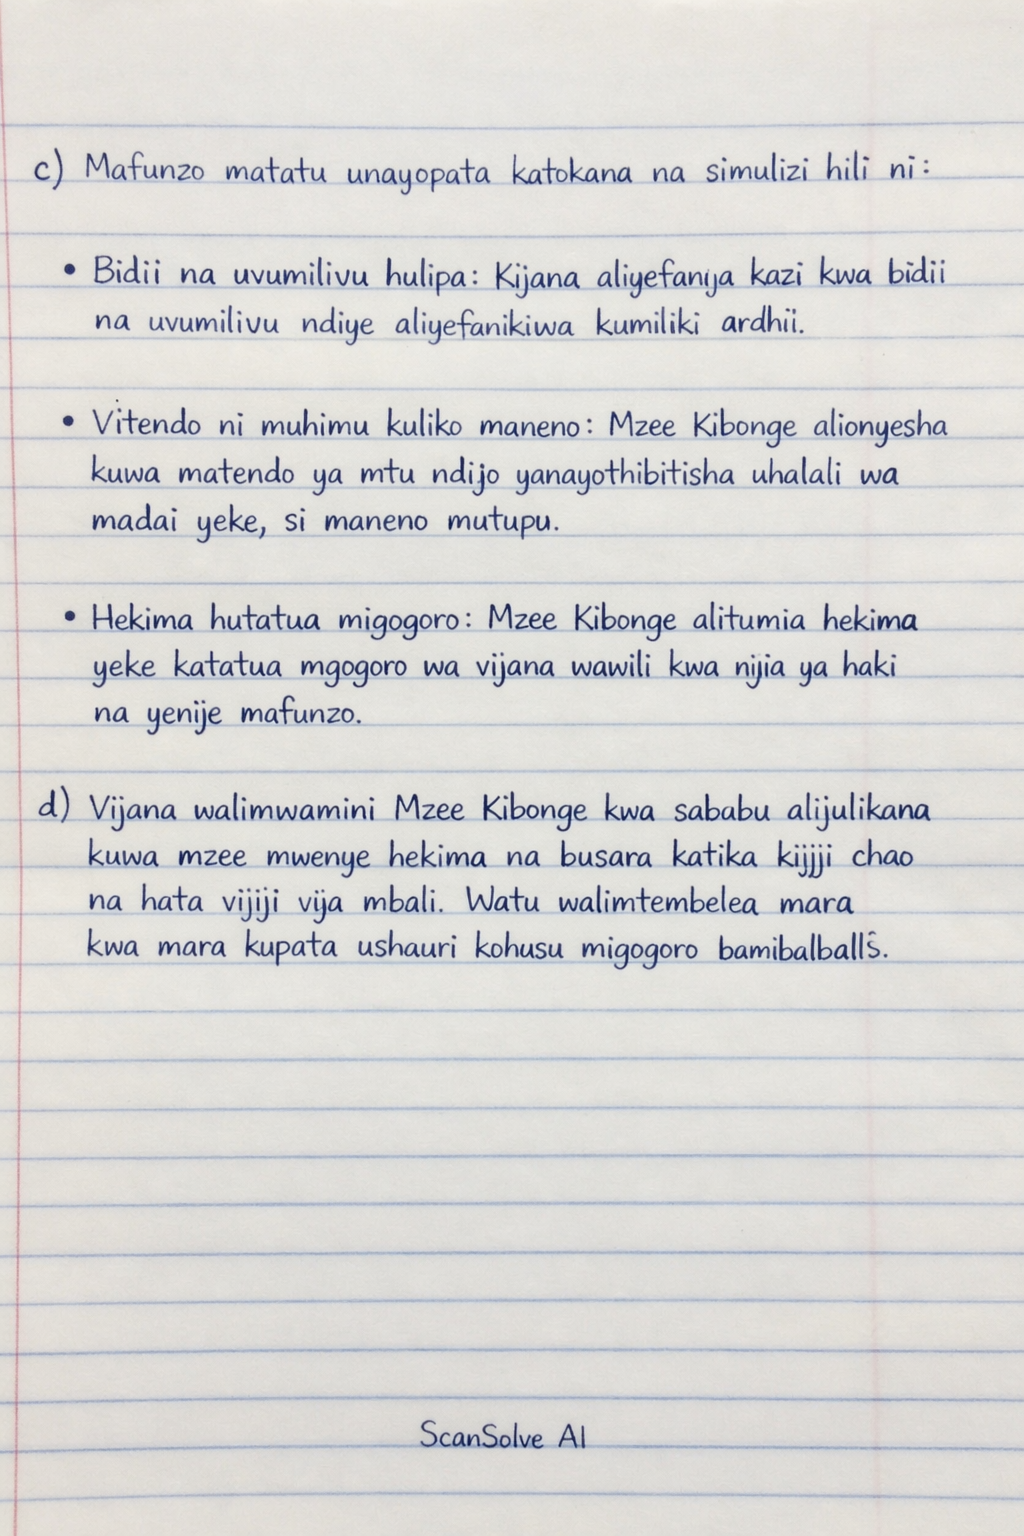 c) Mafunzo matatu unayopata katokana na simulizi hili ni:
• Bidii na uvumilivu hulipa: Kijana aliyefanya kazi kwa bidii
na uvumilivu ndiye aliyefanikiwa kumiliki ardhii.
• Vitendo ni muhimu kuliko maneno: Mzee Kibonge alionyesha
kuwa matendo ya mtu ndijo yanayothibitisha uhalali wa
madai yeke, si maneno mutupu.
• Hekima hutatua migogoro: Mzee Kibonge alitumia hekima
yeke katatua mgogoro wa vijana wawili kwa nijia ya haki
na yenije mafunzo.
d) Vijana walimwamini Mzee Kibonge kwa sababu alijulikana
kuwa mzee mwenye hekima na busara katika kijjji chao
na hata vijiji vija mbali. Watu walimtembelea mara
kwa mara kupata ushauri kohusu migogoro
ScanSolve AI